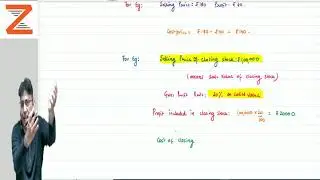 Z
For Eg: Selling Price = ₹100 Profit = ₹20
Cost price = ₹100 - ₹20 = ₹80.
For Eg: Selling Price of closing stock ₹1,00,000
(means sales value of closing stock)
Given Profit Rate: 20% on sales value
Profit included in closing stock: 1,00,000 × 20/100 = ₹20000
Cost of closing